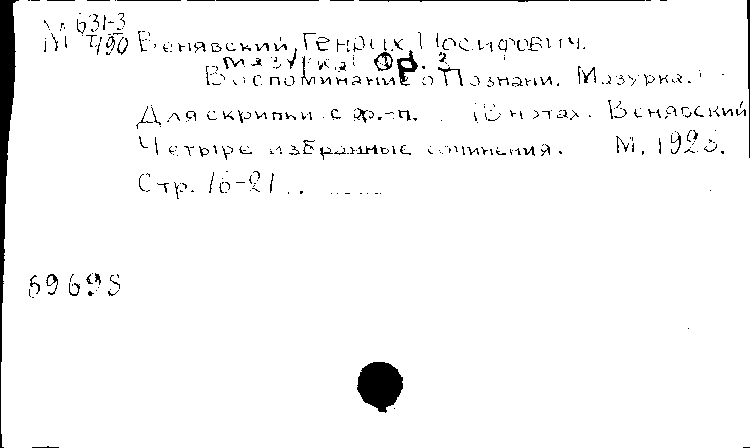 М 631-3
490
Венявский, Генрих Иосифович.
Мазурка Op. 3
Воспоминание о Познани. Мазурка.
Для скрипки с ф.-п. (В нотах. Венявский
Четыре избранные сочинения. М. 1928.
Стр. 16-21..
69698